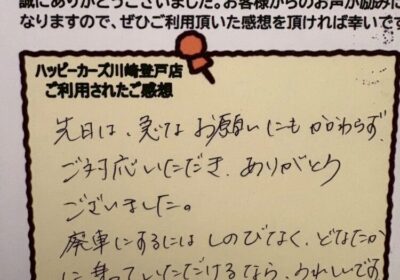 誠にありがとうございました。お客様からのお声が励みに
なりますので、ぜひご利用頂いた感想を頂ければ幸いです
ハッピーカーズ川崎登戸店
ご利用されたご感想
先日は、急なお願いにもかかわらず、
ご対応いただき、ありがとう
ございました。
廃車にするにはしのびなく、どなたか
に乗っていただけるなら、うれしいです